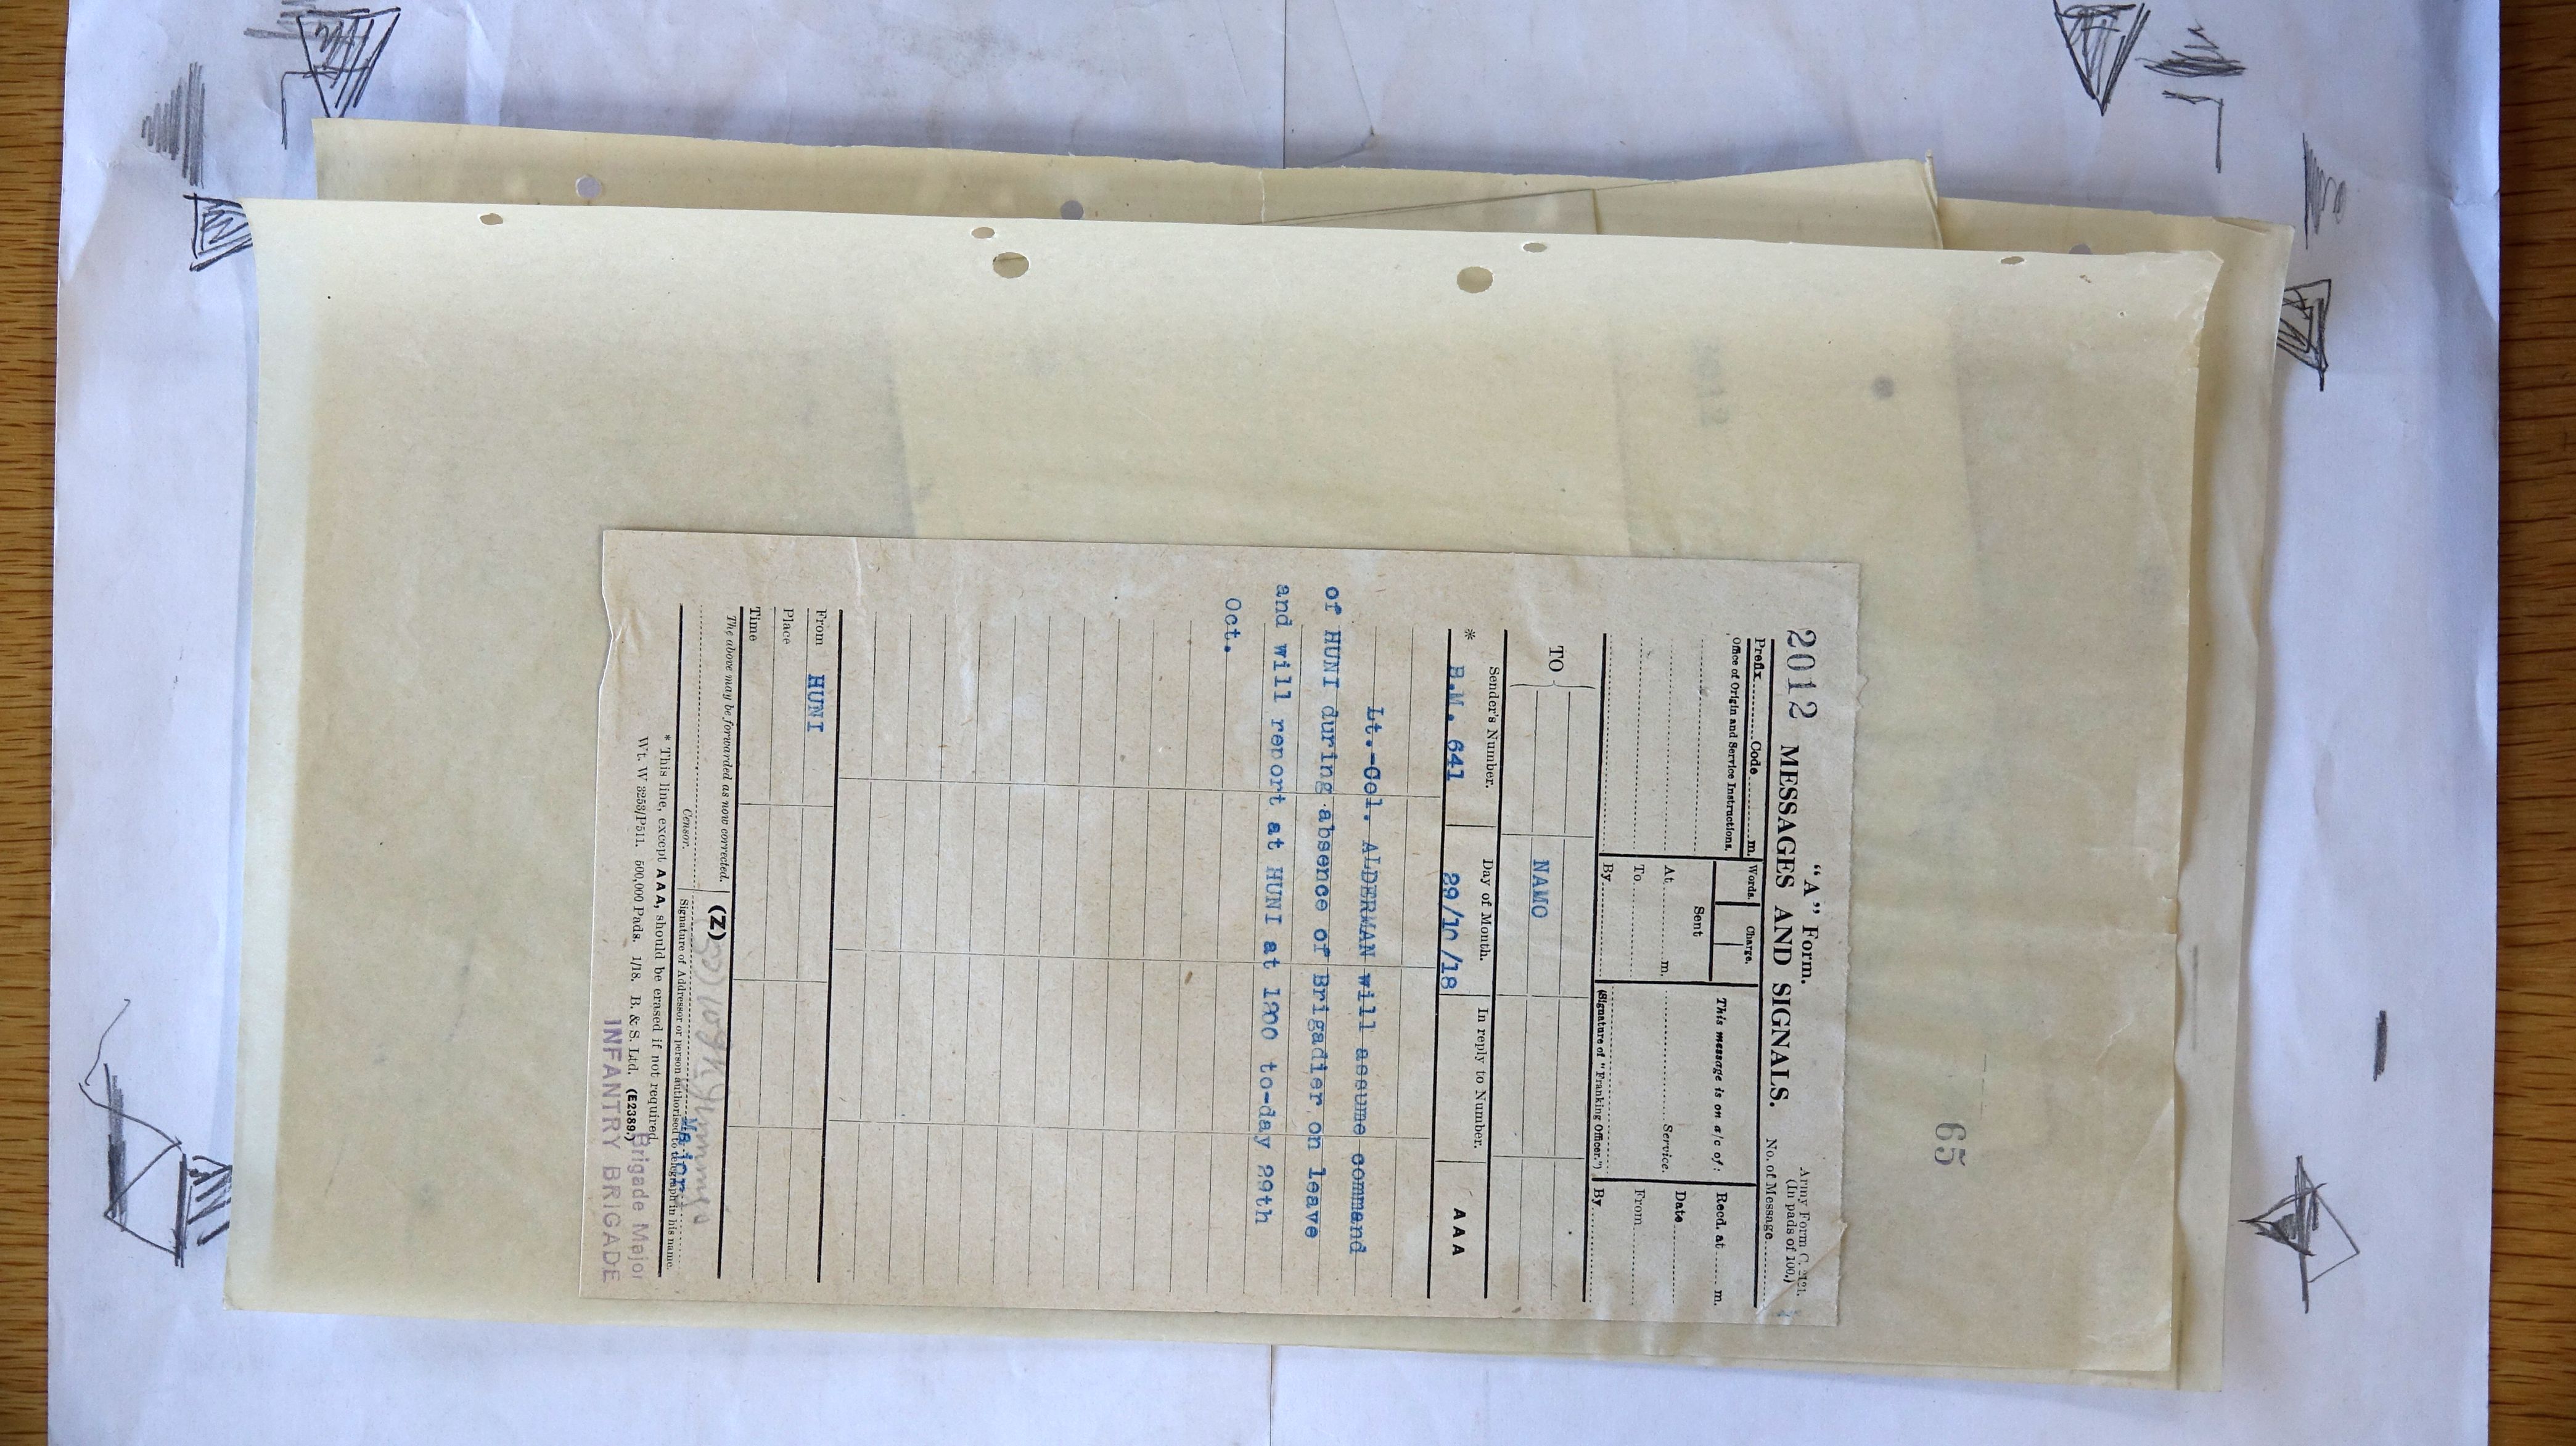 65
"A" Form.
Army Form C. 2121.
(In pads of 100.)
2012 MESSAGES AND SIGNALS.
No. of Message
Prefix Code m.
Words. Charge.
This message is on a/c of :
Recd. at m.
Office of Origin and Service Instructions.
Sent
Date
At m.
Service.
From
To
By
(Signature of "Franking Officer.")
By
TO
NAMO
Sender's Number.
Day of Month.
In reply to Number.
AAA
* B.M. 641
29/10/18
Lt.-Col. ALDERMAN will assume command
of HUNI during absence of Brigadier on leave
and will report at HUNI at 1200 to-day 29th
Oct.
From HUNI
Place
Time
The above may be forwarded as now corrected.
(Z)
Major
Censor.
Signature of Addressor or person authorised to telegraph in his name.
* This line, except AAA, should be erased if not required.
Brigade Major
Wt. W 3253/P511. 500,000 Pads. 1/18. B. & S. Ltd. (E2389.)
INFANTRY BRIGADE